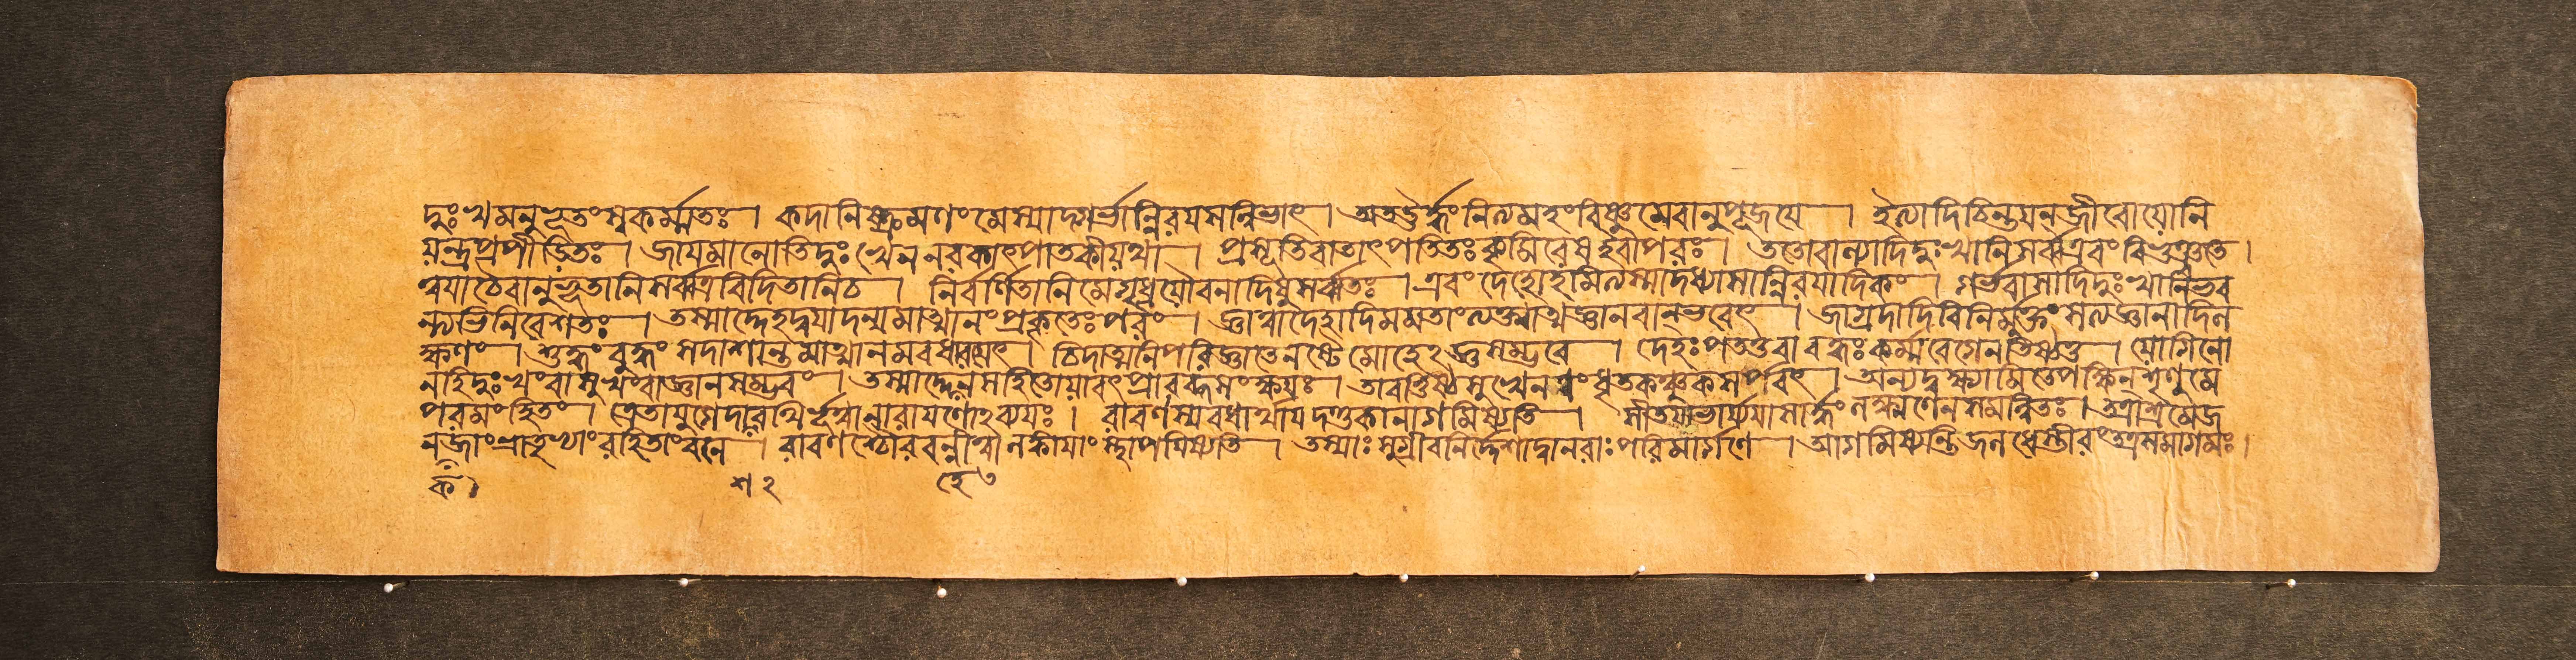 দুঃখমনুভূতং স্বকর্ম্মতঃ । কদা নিষ্ক্রমণং মে স্যাদ্গর্ভান্নিরযসন্নিভাৎ । অত ঊর্দ্ধং নিত্যমহং বিষ্ণুমেবানুপূজযে । ইত্যাদি চিন্তযন্ জীবো যোনি
যন্ত্রপ্রপীডিতঃ । জাযমানোতিদুঃখেন নরকাৎ পাতকী যথা । প্রসূতিবাতাৎ পতিতঃ কৃমিরেষ ইবাপরঃ । ততো বাল্যাদিদুঃখানি সর্ব্ব এবং বিভুঞ্জতে ।
ত্বযা চৈবানুভূতানি সর্ব্বত্র বিদিতানি চ । ন বর্ণিতানি মে গৃধ্র যৌবনাদিষু সর্ব্বতঃ । এবং দেহোহমিত্যস্মাদভ্যাসান্নিরযাদিকং । গর্ভবাসাদিদুঃখানি ভব
ন্ত্যভিনিবেশতঃ । তস্মাদ্দেহদ্বযাদন্যমাত্মানং প্রকৃতেঃ পরং । জ্ঞাত্বা দেহাদিমমতাং ত্যক্ত্বাত্মজ্ঞানবান্ ভবেৎ । জাগ্রদাদিবিনির্মুক্তং সত্যজ্ঞানাদিল
ক্ষণং । শুদ্ধং বুদ্ধং সদা শান্তমাত্মানমবধারযেৎ । চিদাত্মনি পরিজ্ঞাতে নষ্টে মোহেহজ্ঞসম্ভবে । দেহঃ পততু বারব্ধঃ কর্ম্মবেগেন তিষ্ঠতু । যোগিনো
ন হি দুঃখং বা সুখং বাজ্ঞানসম্ভবং । তস্মাদ্দেহেন সহিতো যাবৎ প্রারব্ধসংক্ষযঃ । তাবত্তিষ্ঠ সুখেন ত্বং ধৃতকঞ্চুকসর্পবৎ । অন্যদ্বক্ষ্যামি তে পক্ষিন্ শৃণু মে
পরমং হিতং । ত্রেতাযুগে দাশরথির্ভূত্বা নারাযণোঽব্যযঃ । রাবণস্য বধার্থায দণ্ডকানাগমিষ্যতি । সীতযা ভার্য্যযা সার্দ্ধং লক্ষ্মণেন সমন্বিতঃ । তত্রাশ্রমে জ
নকজাং ভ্রাতৃভ্যাং রহিতাং বনে । রাবণশ্চোরবন্নীত্বা লঙ্কাযাং স্থাপযিষ্যতি । তস্যাঃ সুগ্রীবনির্দ্দেশাদ্বানরাঃ পরিমার্গণে । আগমিষ্যন্তি জলধেস্তীরং তত্র সমাগমঃ ।